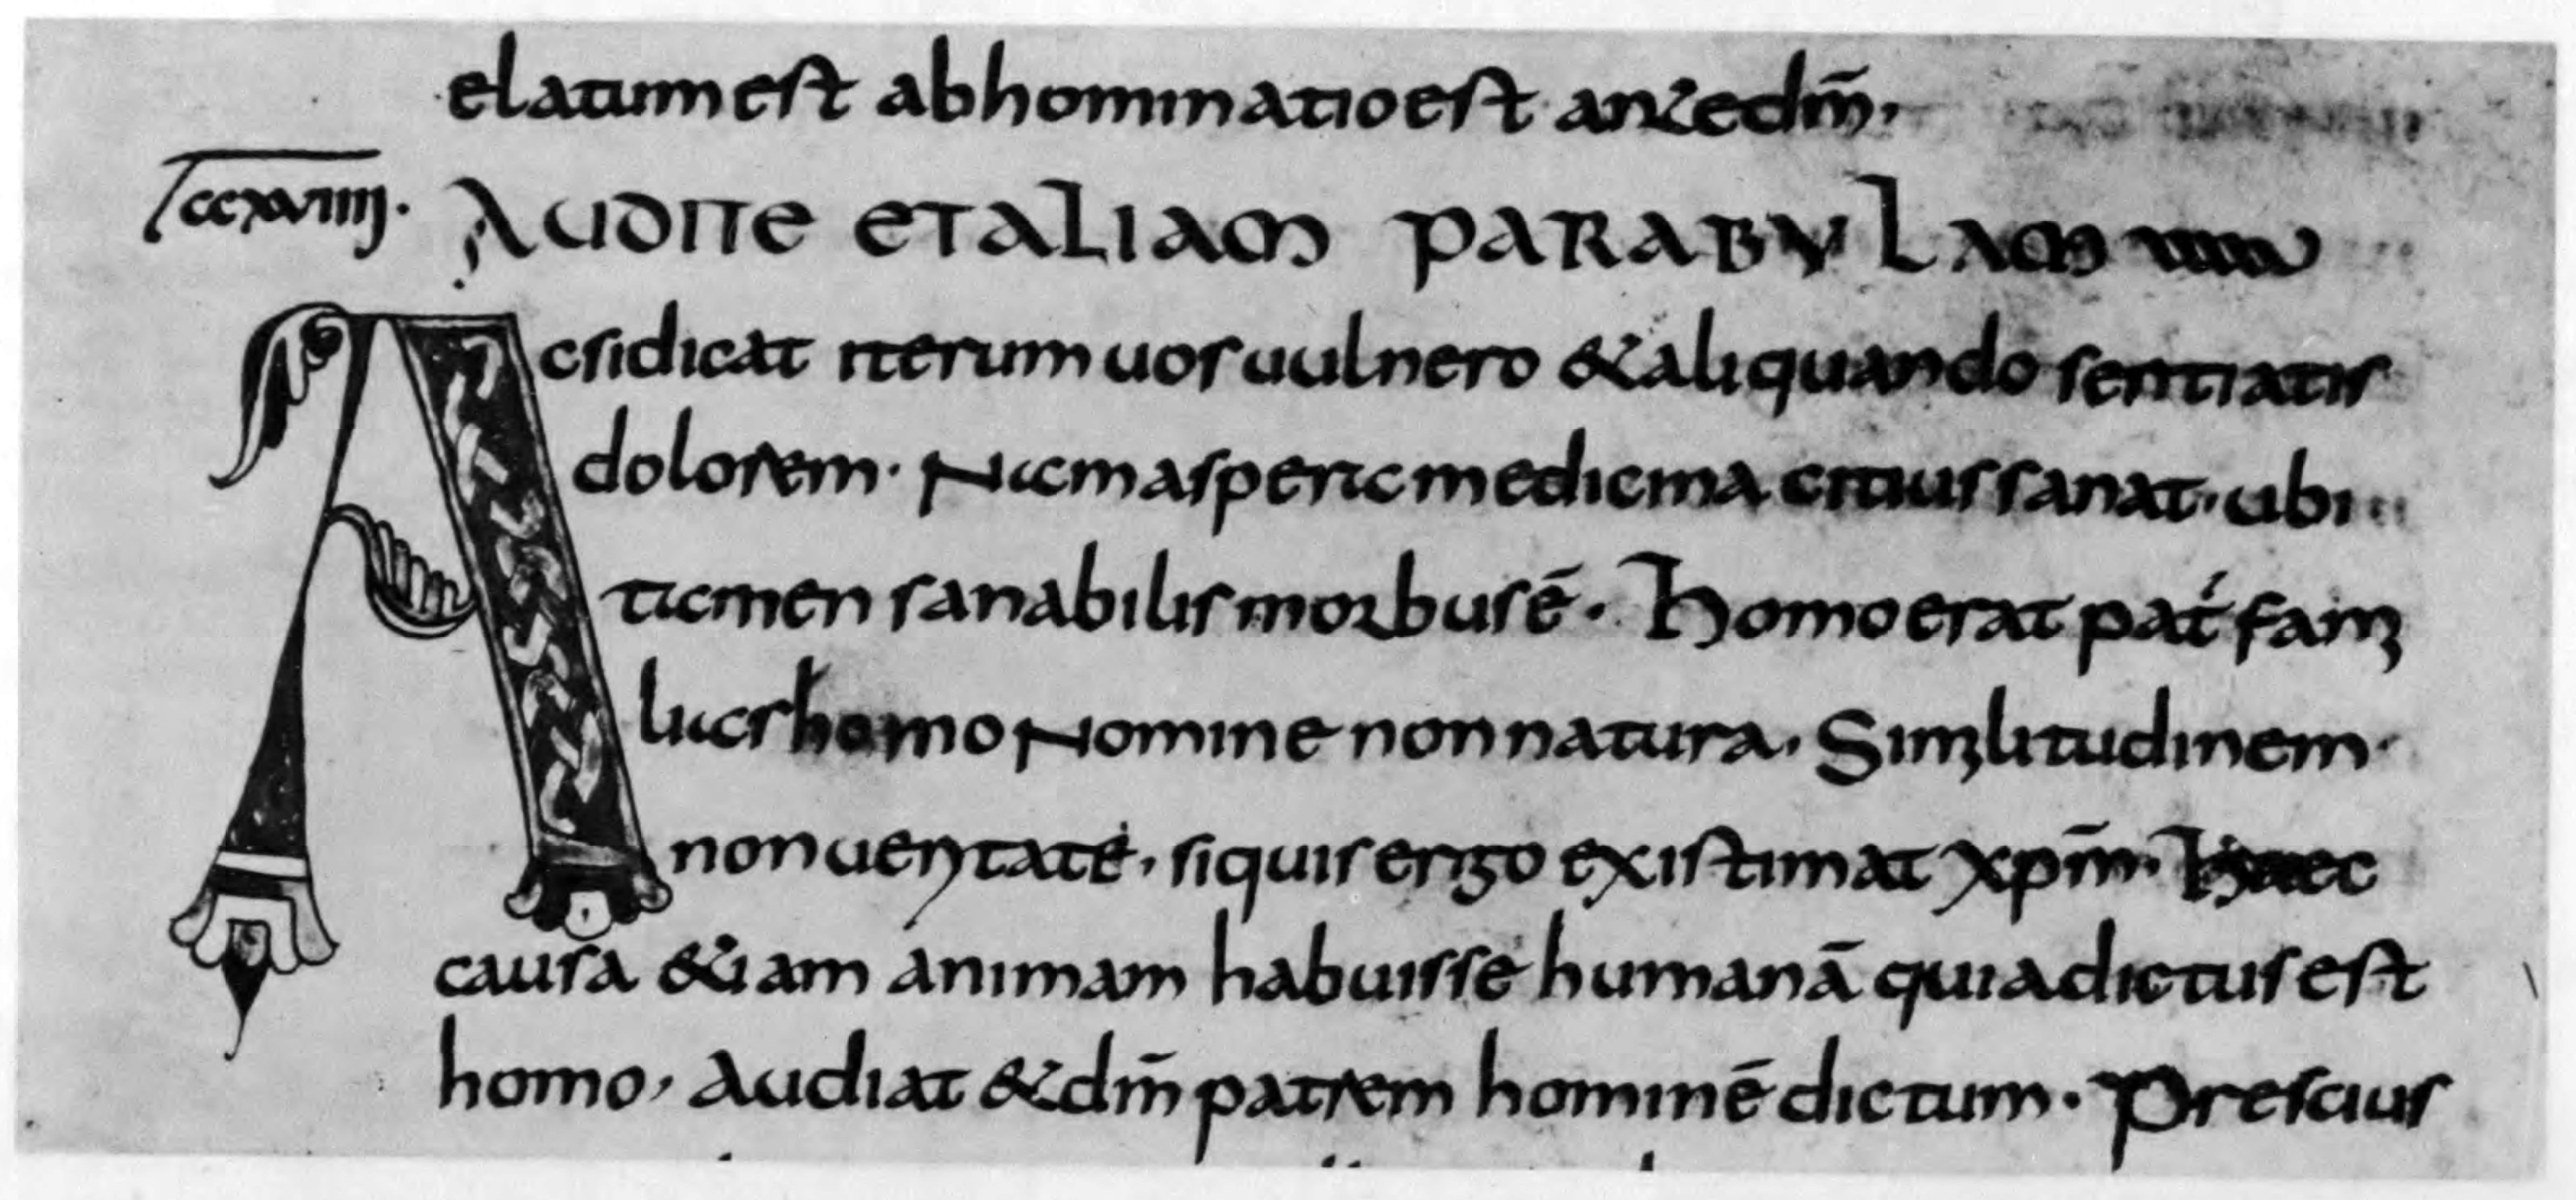 elatum est abhominatio est ante dm̄.
ccxviiij. AUDITE ET ALIAM PARABULAM
Ac si dicat iterum uos uulnero & aliquando sentiatis
dolorem. Nam asperam medicina citius sanat. ubi
tamen sanabilis morbus ē. Homo erat pat́ fam
luas homo Nomine non natura. Similitudinem
non ueritate. si quis ergo existimat xpm̄. Haec
causa & iam animam habuisse humanā quia dictus est
homo, Audiat & dm̄ patrem hominē dictum. Prescius